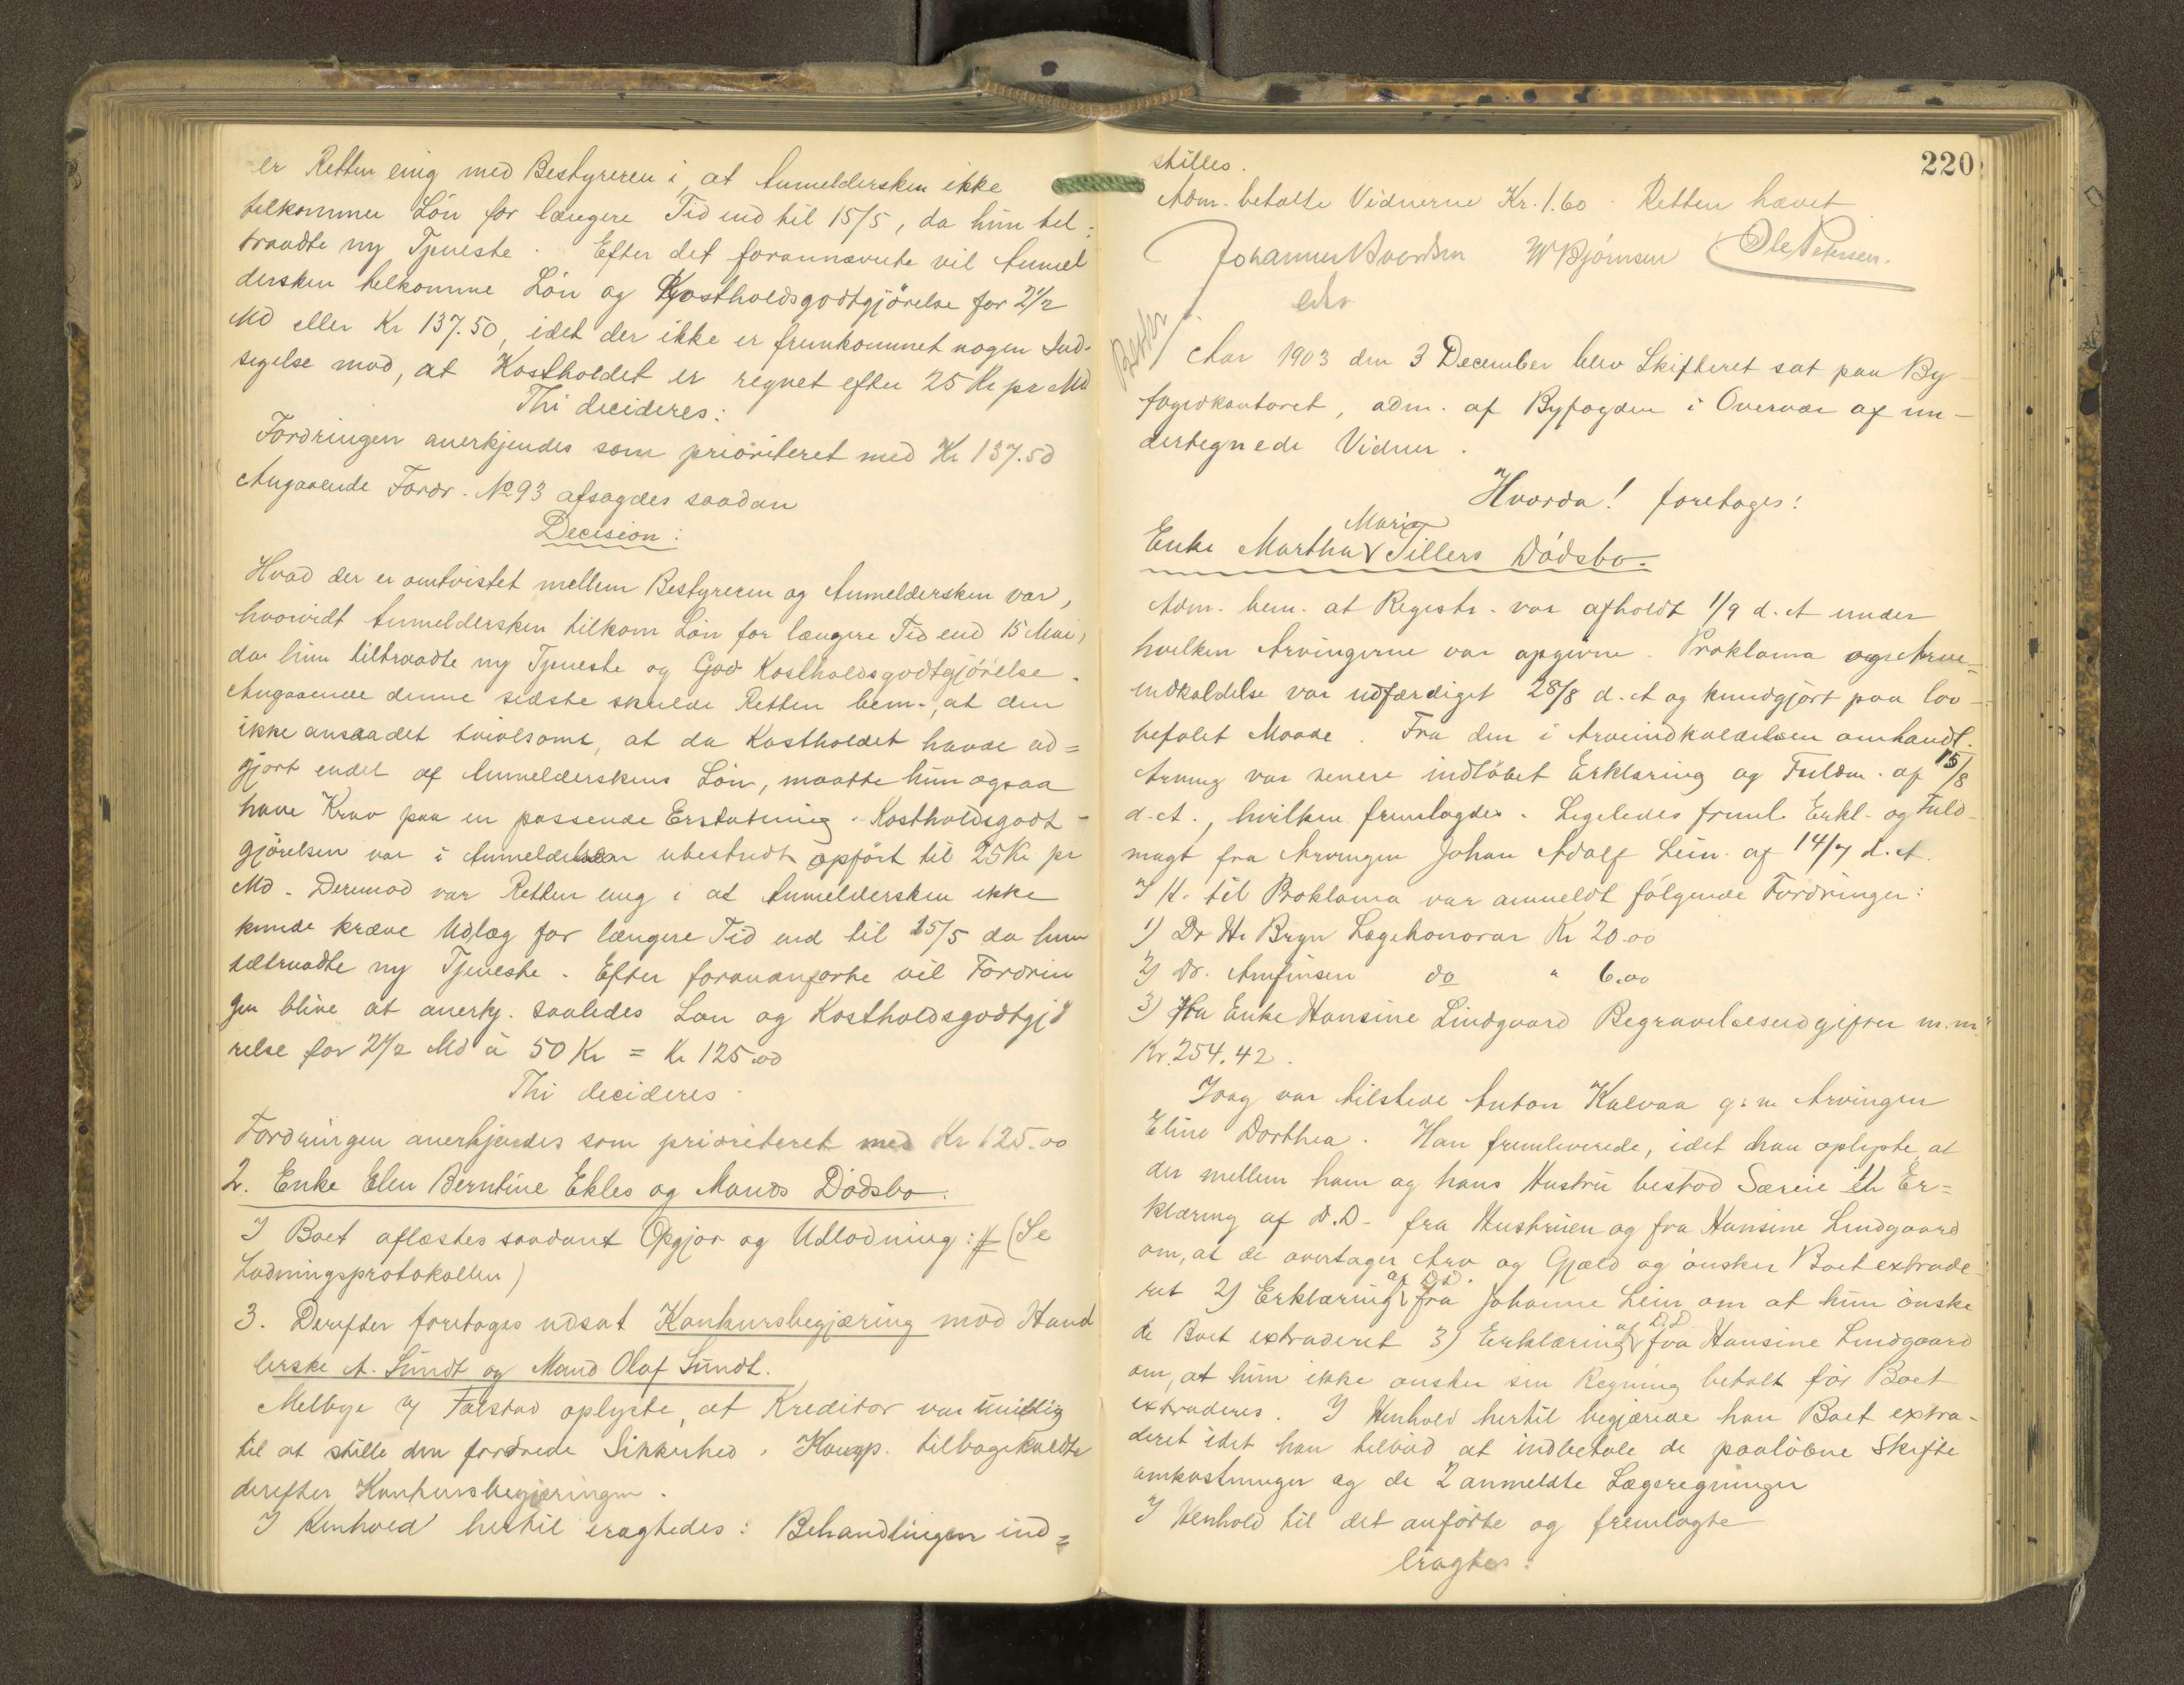 er Retten enig med Bestyreren i, at Anmeldersken ikke
tilkommer Løn for længere Tid end til 15/5, da hun til:
traadte ny Tjeneste. Efter det forannævnte vil Anmel
dersken tilkomme Løn og Kostholdsgodtgjörelse for 2 1/2
Md eller Kr 137.50, idet der ikke er fremkommet nogen Ind-
sigelse mod, at Kostholdet er regnet efter 25 Kr pr Md
Thi decideres:
Fordringen anerkjendes som prioriteret med Kr 137.50
Angaaende Fordr. No 93 afsagdes saadan
Decision:
Hvad der er omtvistet mellem Bestyreren og Anmeldersken var,
hvorvidt Anmeldersken tilkom Løn for længere Tid end 15 Mai,
da hun tiltraadte ny Tjeneste og Kostholdsgodtgjörelse.
Angaaende denne sidste skulde Retten bem., at den
ikke ansaa det tvivlsomt, at da Kostholdet havde ud=
gjort endel af Anmelderskens Løn, maatte hun ogsaa
have Krav paa en passende Erstatning. Kostholdsgodt-
gjörelsen var i Anmeldelsen ubestridt opført til 25 Kr pr
Md. Derimod var Retten enig i at Anmeldersken ikke
kunde kræve Udlæg for længere Tid end til 15/5 da hun
tiltraadte ny Tjeneste. Efter forananførte vil Fordrin
gen blive at anerkj. saaledes Løn og Kostholdsgodtgjö
relse for 2 1/2 Md à 50 Kr = Kr 125.00
Thi decideres
Fordringen anerkjendes som prioriteret med Kr 125.00
2. Enke Elen Berntine Ekles og Mands Dödsbo.
I Boet aflæstes saadant Opgjør og Udlodning: # (Se
Lodningsprotokollen)
3. Derefter foretoges udsat Konkursbegjæring mod Hand
lerske A. Sundt og Mand Olaf Sundt.
Melbye &amp; Falstad oplyste, at Kreditor var uvillig
til at stille den fordrede Sikkerhed. Komp. tilbagekaldte
derefter Konkursbegjæringen.
I Henhold hertil eragtedes: Behandlingen ind=
220
stilles.
Adm. betalte Vidnerne Kr. 1.60. Retten hævet
W Bjørnsen Ole Petersen.
Aar 1903 den 3 December blev Skifteret sat paa By-
fogedkontoret, adm. af Byfogden i Overvær af un-
dertegnede Vidner.
Hvorda! foretoges:
Maria
Enke Martha Tillers Dödsbo.
Adm. bem. at Registr. var afholdt 1/9 d. A under
hvilken Arvingerne var opgivne. Proklama og Arve-
indkaldelse var udfærdiget 28/8 d. A og kundgjort paa lov-
befalet Maade. Fra den i Arveindkaldelsen omhandl.
Arving var senere indløbet Erklæring og Fuldm. af 15/8
d. A., hvilken fremlagdes. Ligeledes freml. Erkl. og Fuld-
magt fra Arvingen Johan Adolf Lein af 14/7 d. A.
I H. til Proklama var anmeldt følgende Fordringer:
1) Dr H. Bryn Lægehonorar Kr 20.00
2) Dr. Arnfinsen do " 6.00
3) Fra Enke Hansine Lindgaard Begravelsesudgifter m.m.
Kr. 254.42.
Idag var tilstede Anton Kalvaa g. m Arvingen
Eline Dorthea. Han fremleverede, idet han oplyste, at
der mellem ham og hans Hustru bestod Særeie 1) Er=
klæring af D.D. fra Hustruen og fra Hansine Lindgaard
om, at de overtager Arv og Gjæld og ønsker Boet extrade-
af DD.
ret 2) Erklæring fra Johanne Lein om at hun önske
af D.D
de Boet extraderet 3) Erklæring fra Hansine Lindgaard
om, at hun ikke ønsker sin Regning betalt før Boet
extraderes. I Henhold hertil begjærede han Boet extra-
deret idet han tilbød at indbetale de paaløbne Skifte
omkostninger og de 2 anmeldte Lægeregninger
I Henhold til det anførte og fremlagte
eragtes: